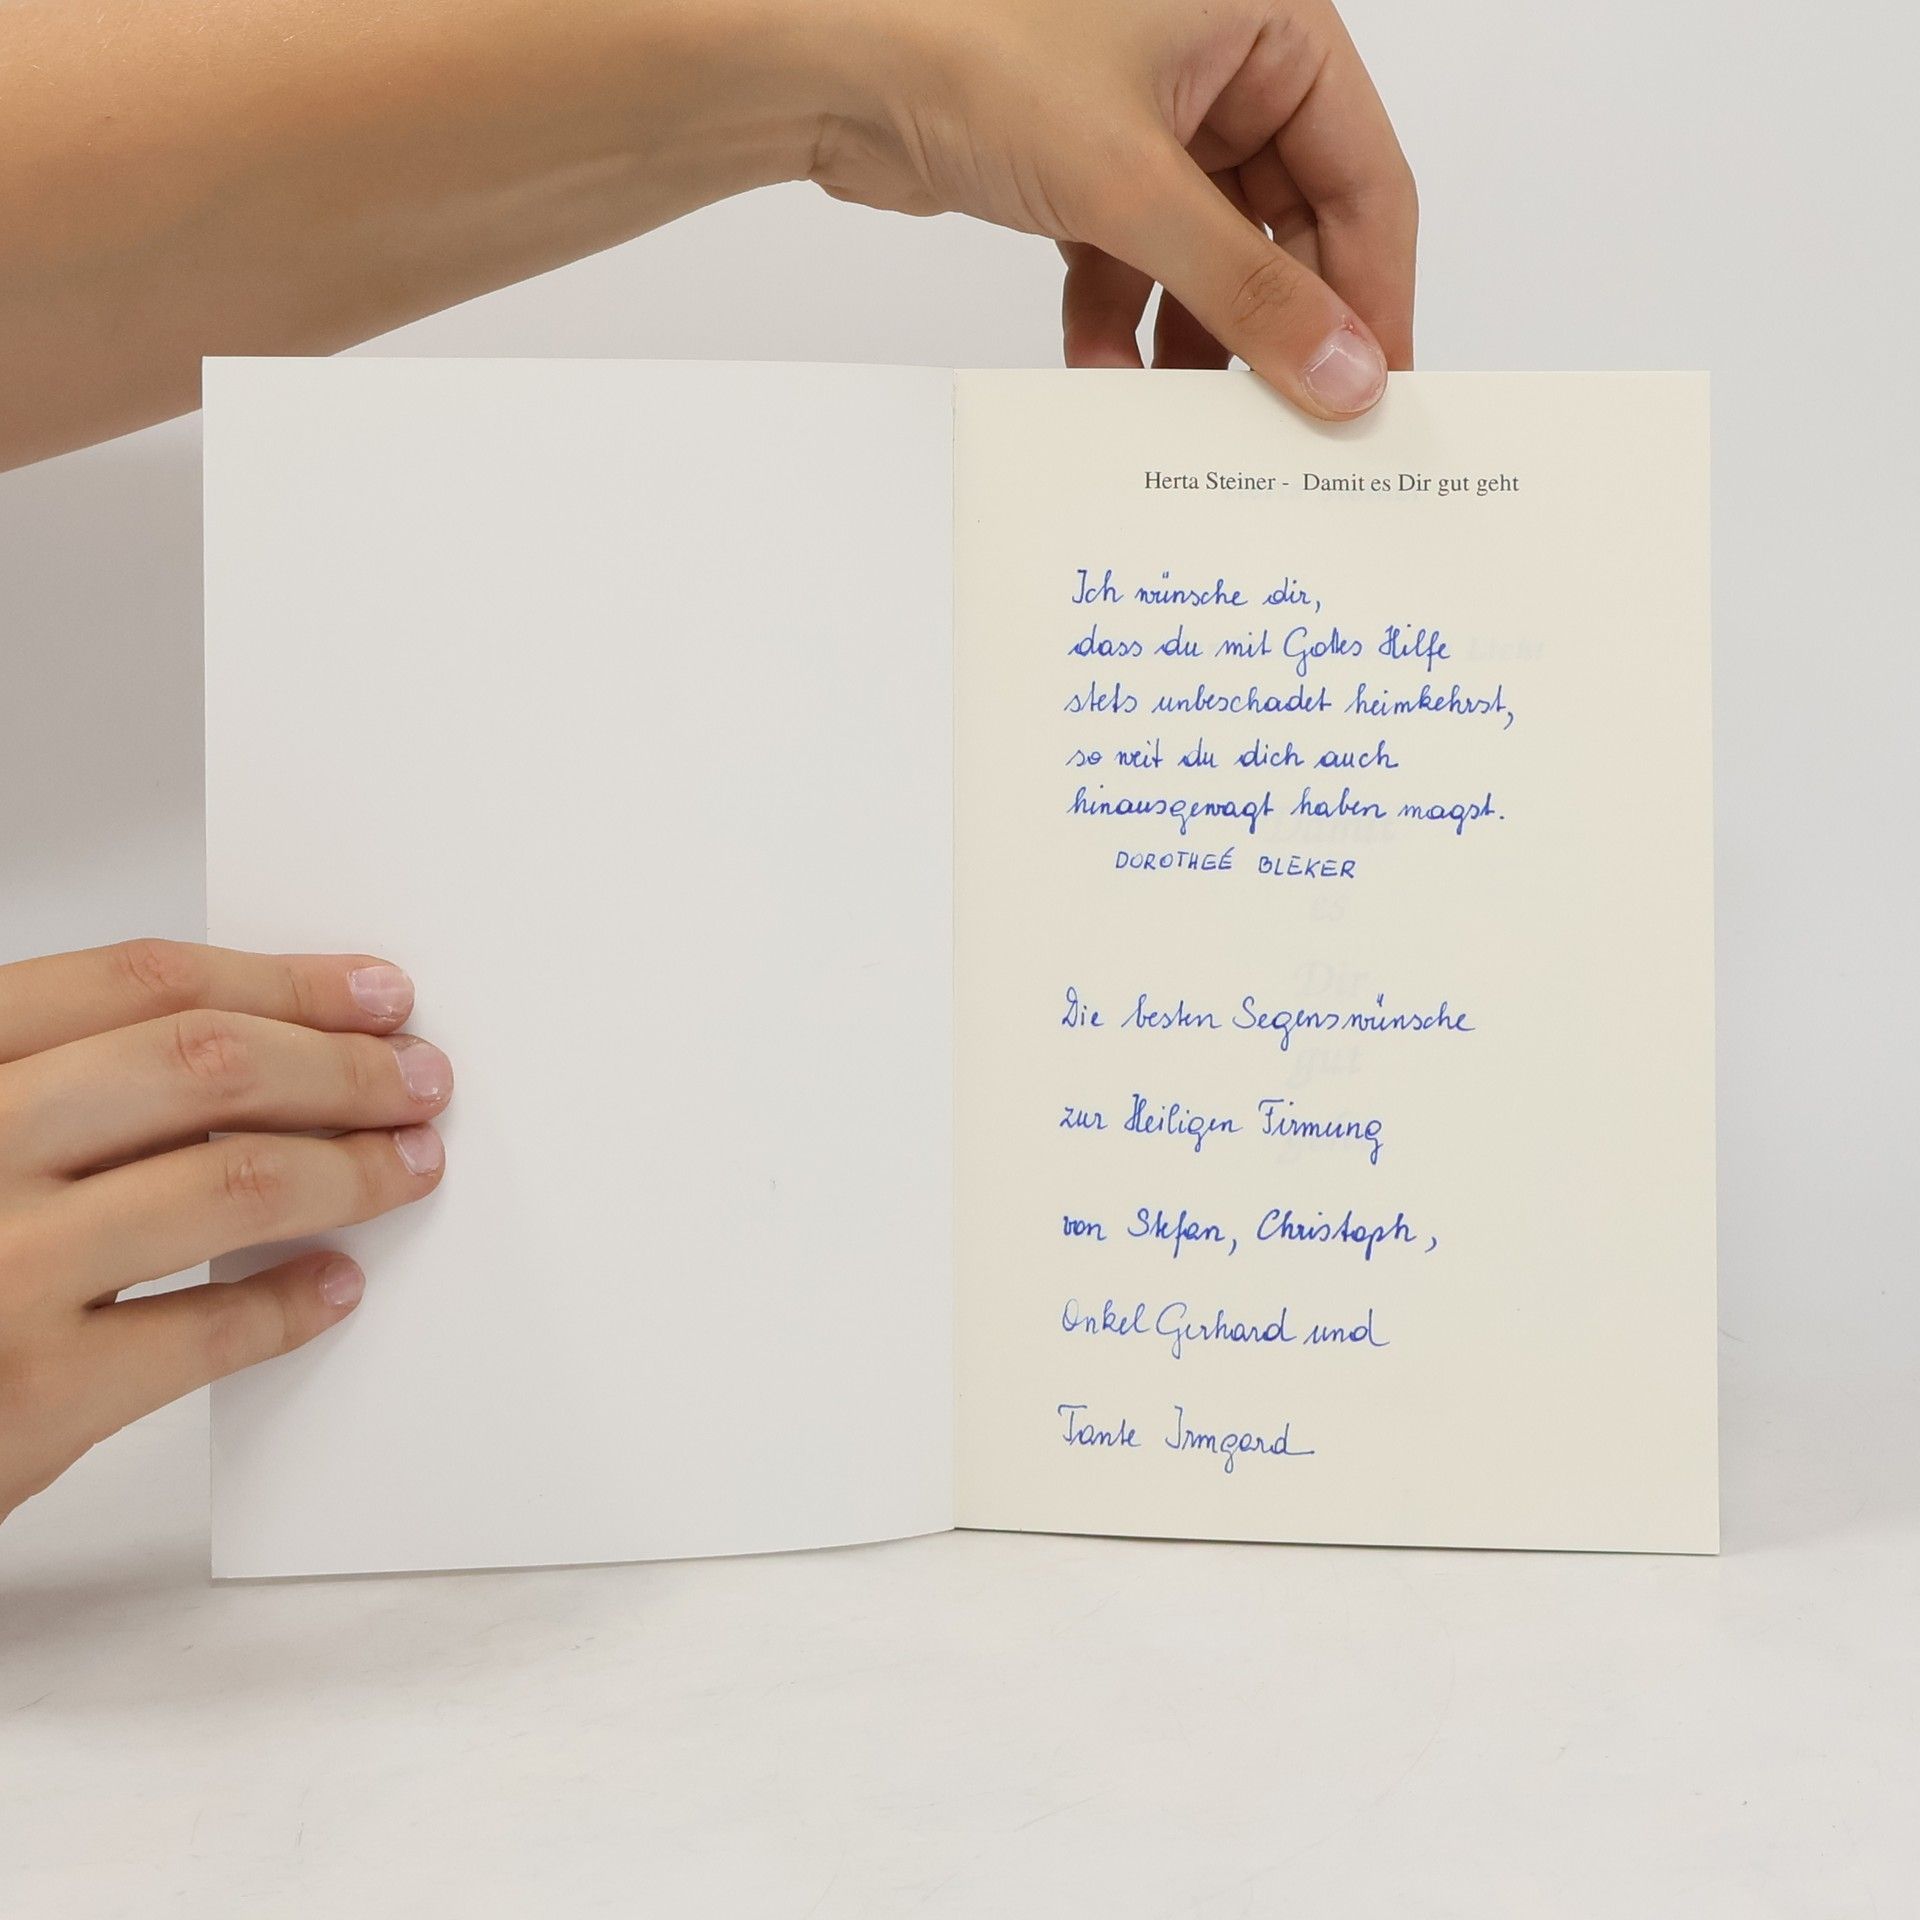 Herta Steiner - Damit es Dir gut geht
Ich wünsche dir,
dass du mit Gottes Hilfe
stets unbeschadet heimkehrst,
so weit du dich auch
hinausgewagt haben magst.
DOROTHEÉ BLEKER
Die besten Segenswünsche
zur Heiligen Firmung
von Stefan, Christoph,
Onkel Gerhard und
Tante Irmgard